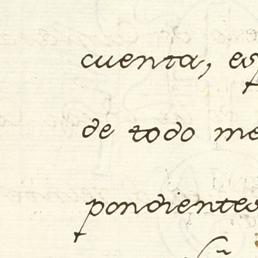 cuenta, es
de todo me
pondientes